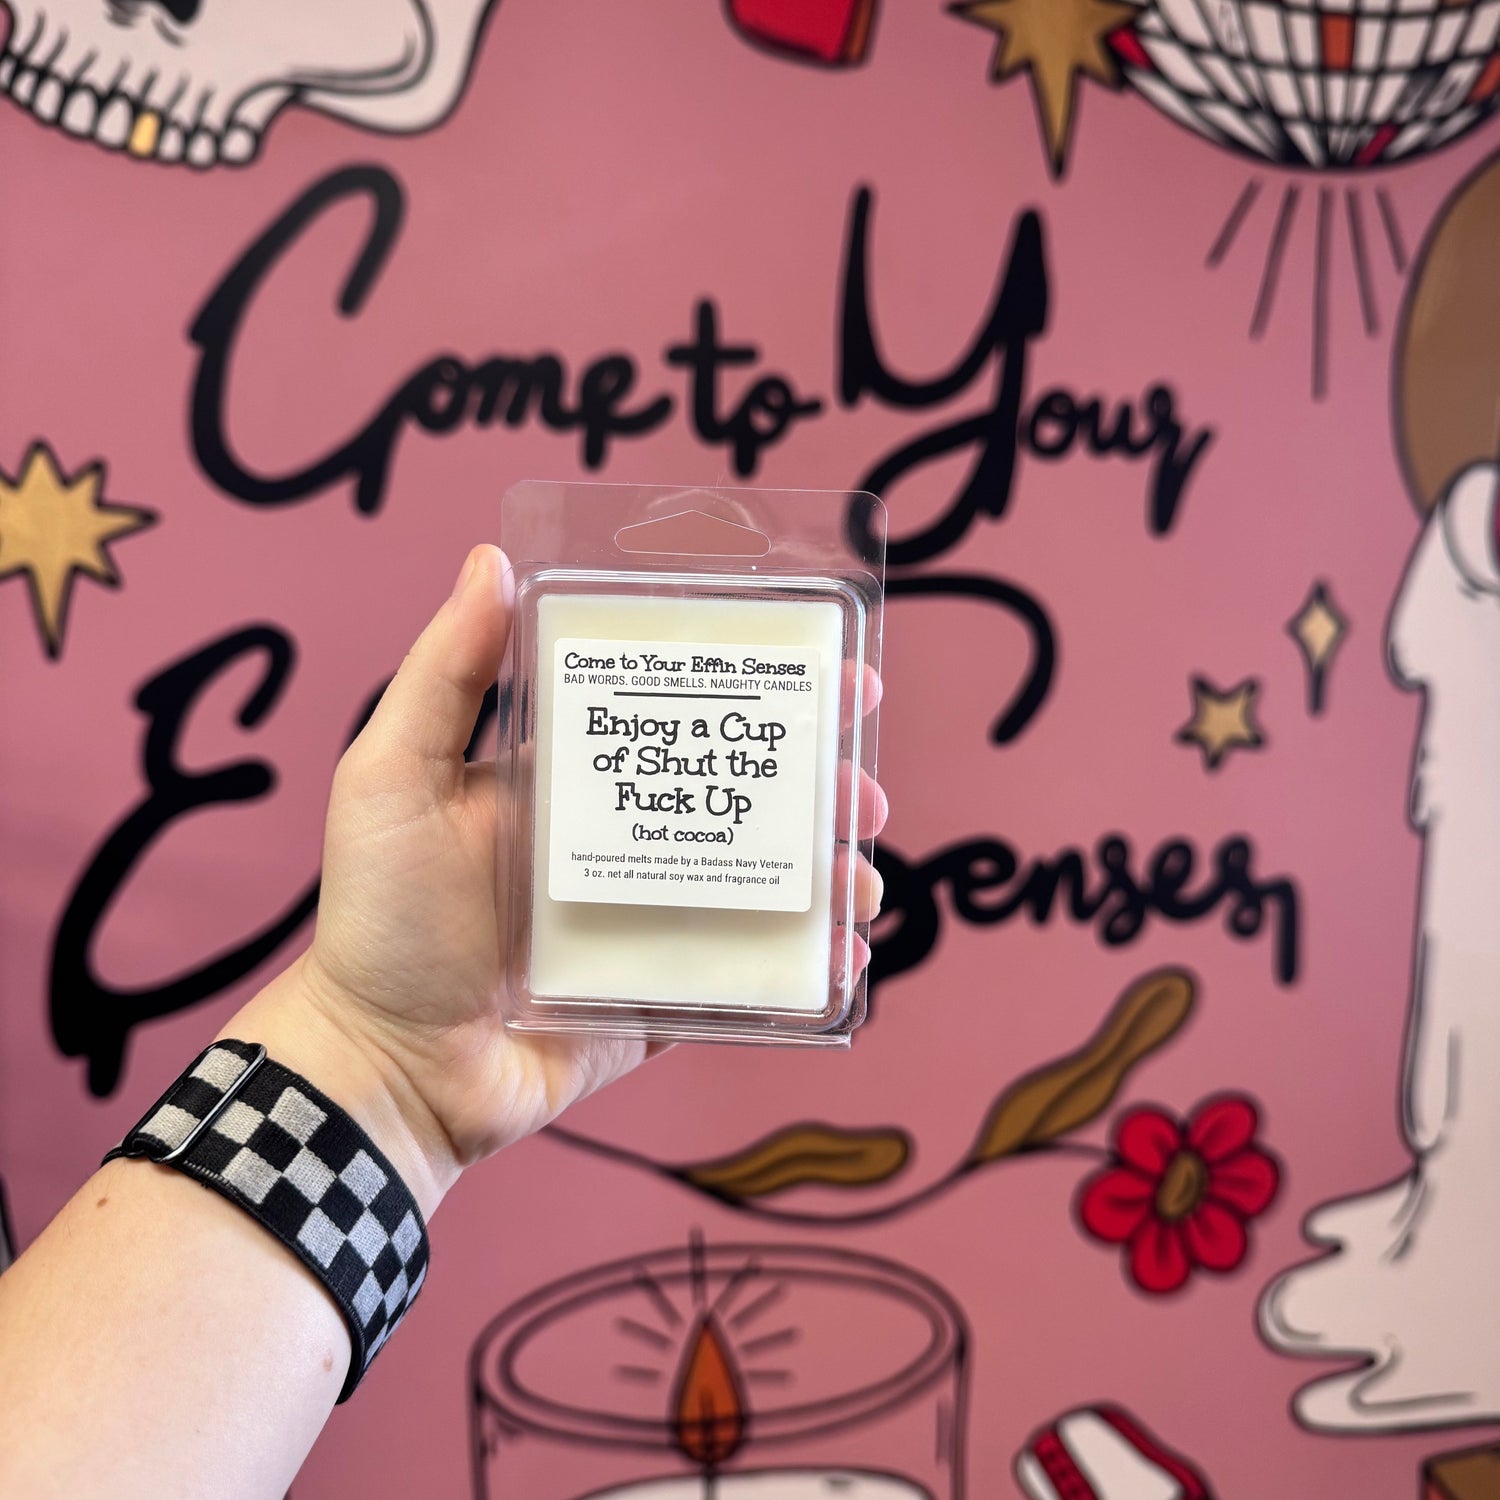 Come to Your
E Senses,
Come to Your Effin Senses
BAD WORDS. GOOD SMELLS. NAUGHTY CANDLES
Enjoy a Cup
of Shut the
Fuck Up
(hot cocoa)
hand-poured melts made by a Badass Navy Veteran
3 oz. net all natural soy wax and fragrance oil